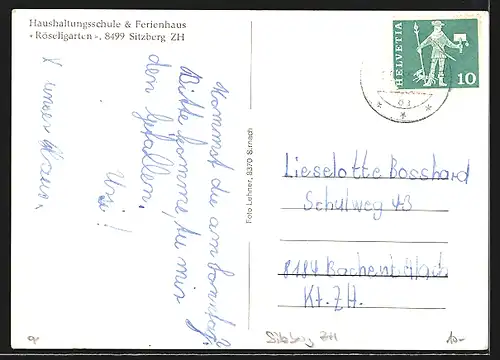 Haushaltungsschule & Ferienhaus
«Röseligarten», 8499 Sitzberg ZH
Kommst du am Sonntag?
Bitte komme, tu mir
den Gefallen.
Ursi!
unser Haus.
Foto Lehner, 8370 Sirnach
HELVETIA
10
Lieselotte Bosshard
Schulweg 43
8184 Bachenbülach
Kt. ZH.
Sitzberg ZH
10.-